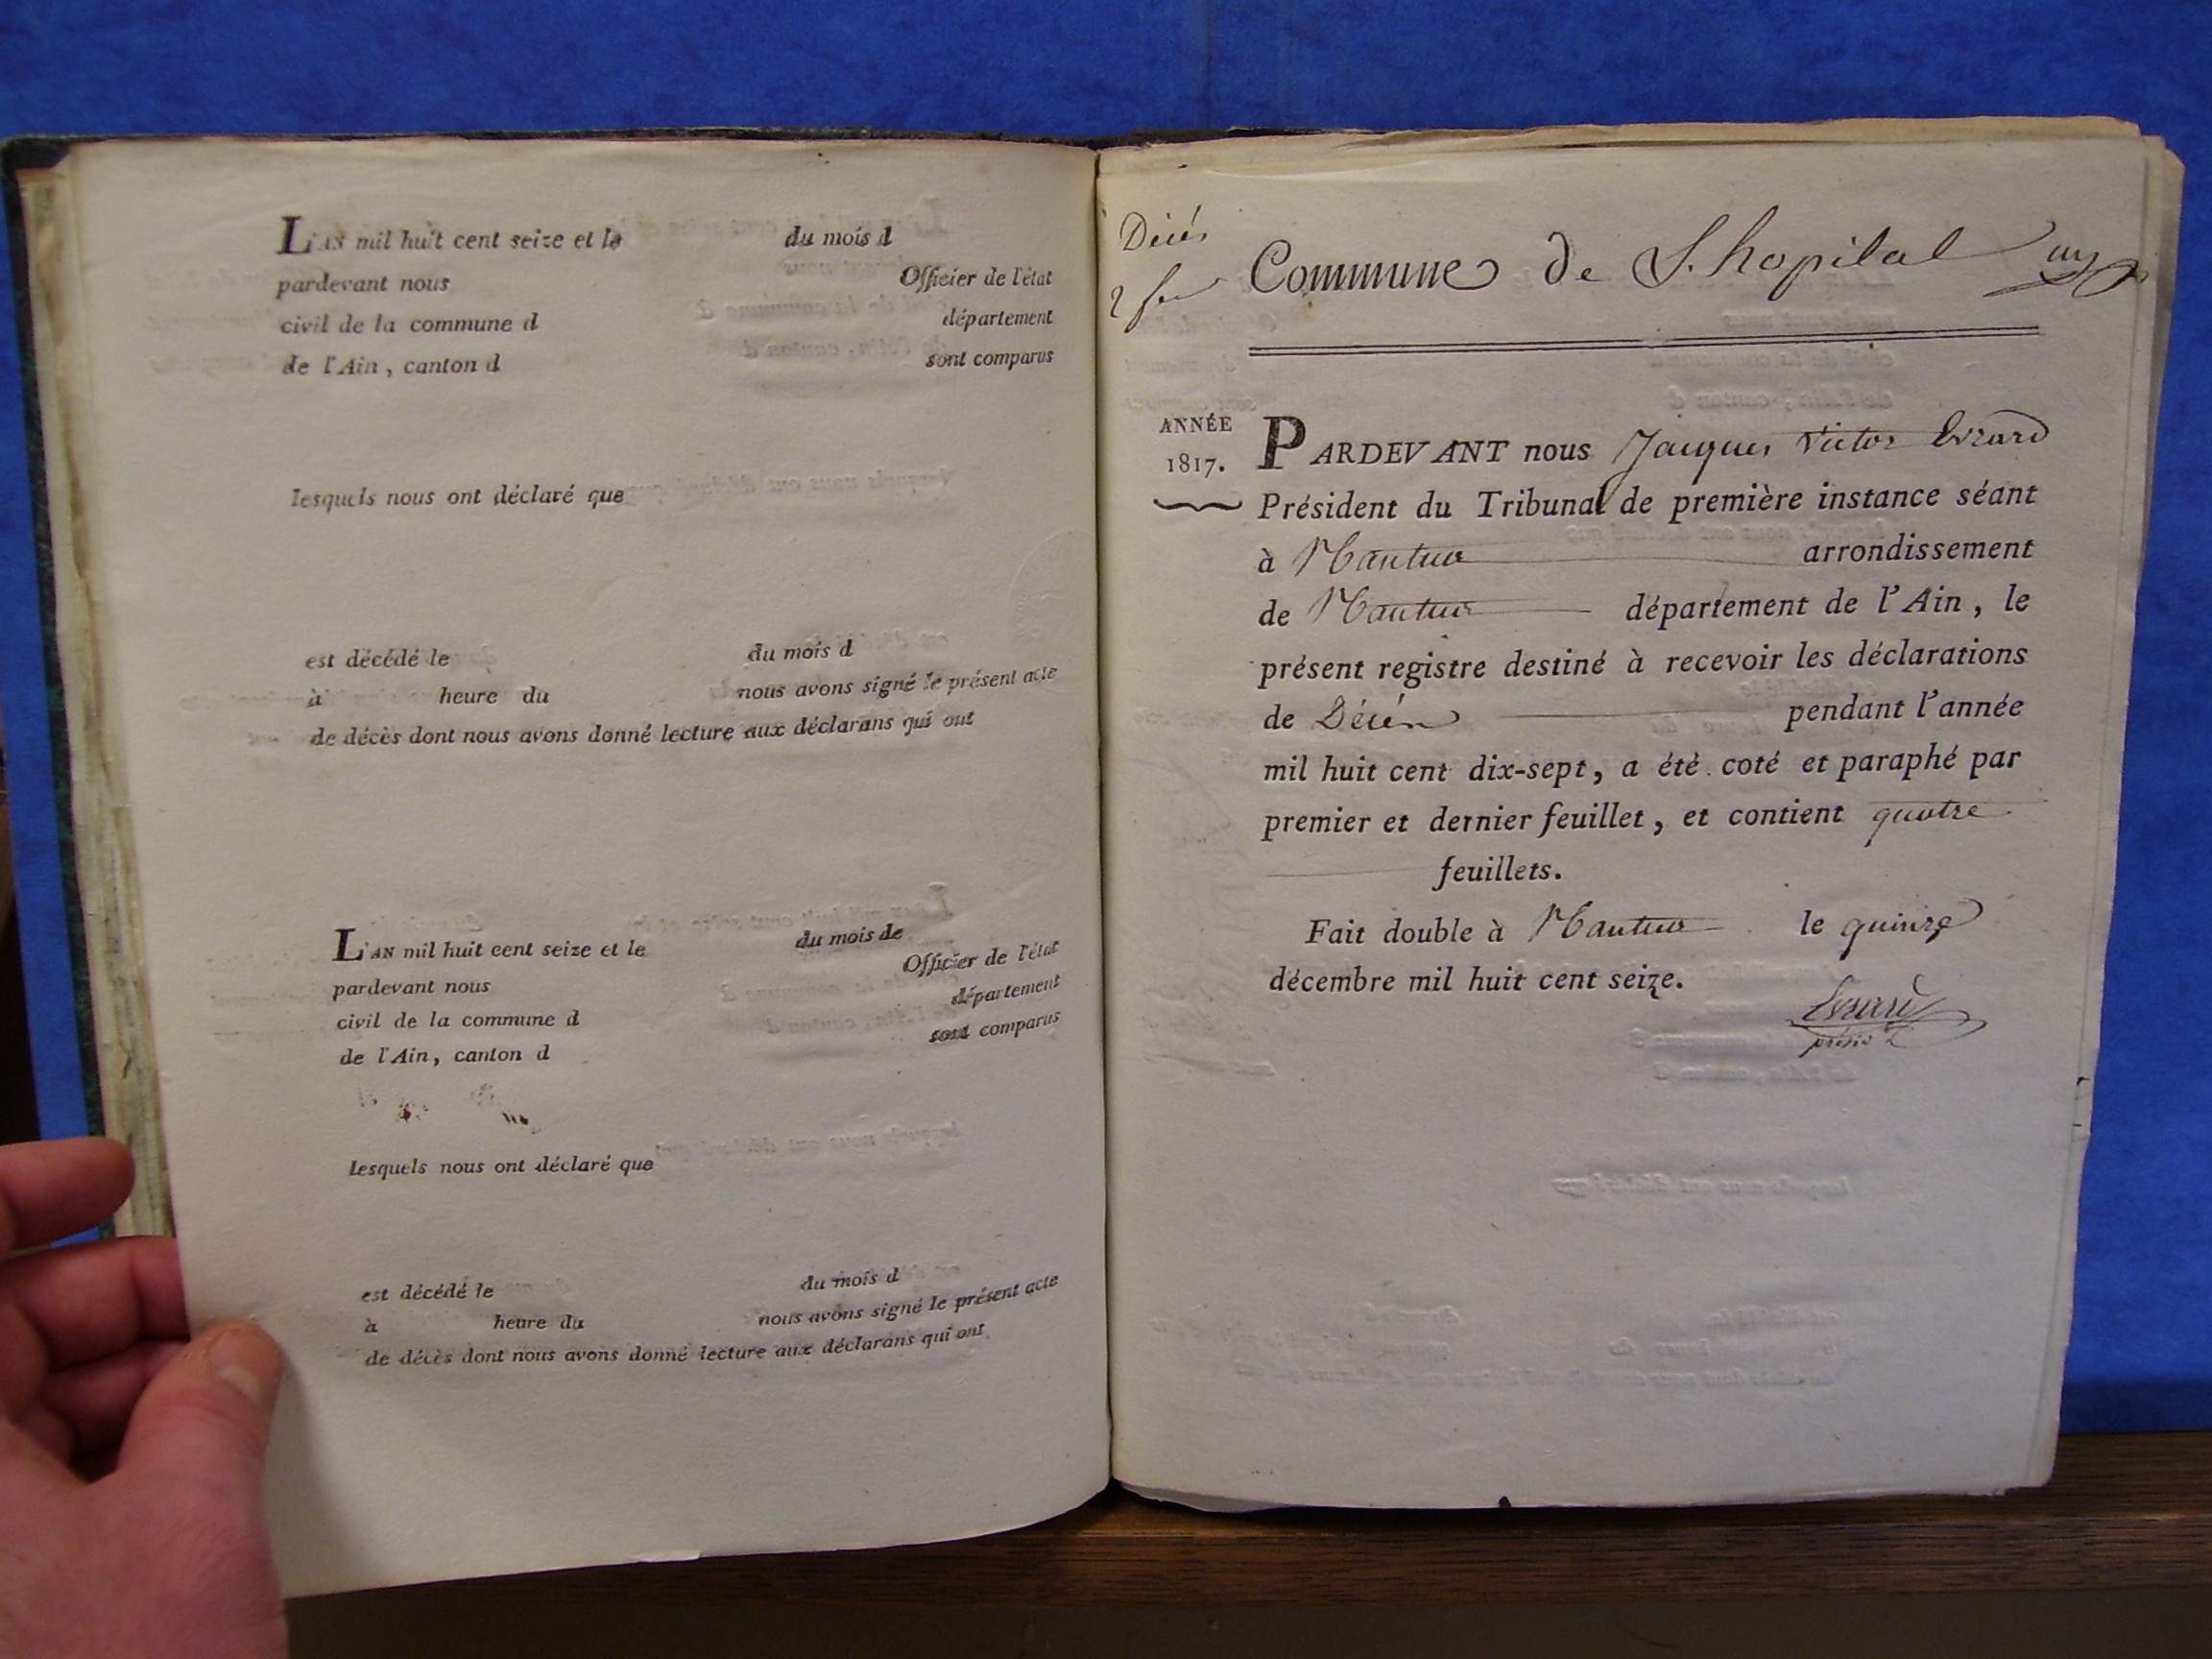 L'AN mil huit cent seize et le du mois d
pardevant nous Officier de l'état
civil de la commune d département
de l'Ain, canton d sont comparus
lesquels nous ont déclaré que
est décédé le du mois d
à heure du nous avons signé le présent acte
de décès dont nous avons donné lecture aux déclarans qui ont
L'AN mil huit cent seize et le du mois de
pardevant nous Officier de l'état
civil de la commune d département
de l'Ain, canton d sont comparus
Lesquels nous ont déclaré que
est décédé le du mois d
à heure du nous avons signé le présent acte
de décès dont nous avons donné lecture aux déclarans qui ont
Décès
2
Commune de L'hopital
ANNÉE
1817.
PARDEVANT nous Jacques Victor Evrard
Président du Tribunal de première instance séant
à Nantua arrondissement
de Nantua département de l'Ain, le
présent registre destiné à recevoir les déclarations
de Décès pendant l'année
mil huit cent dix-sept, a été coté et paraphé par
premier et dernier feuillet, et contient quatre
feuillets.
Fait double à Nantua le quinze
décembre mil huit cent seize.
Evrard
présid t